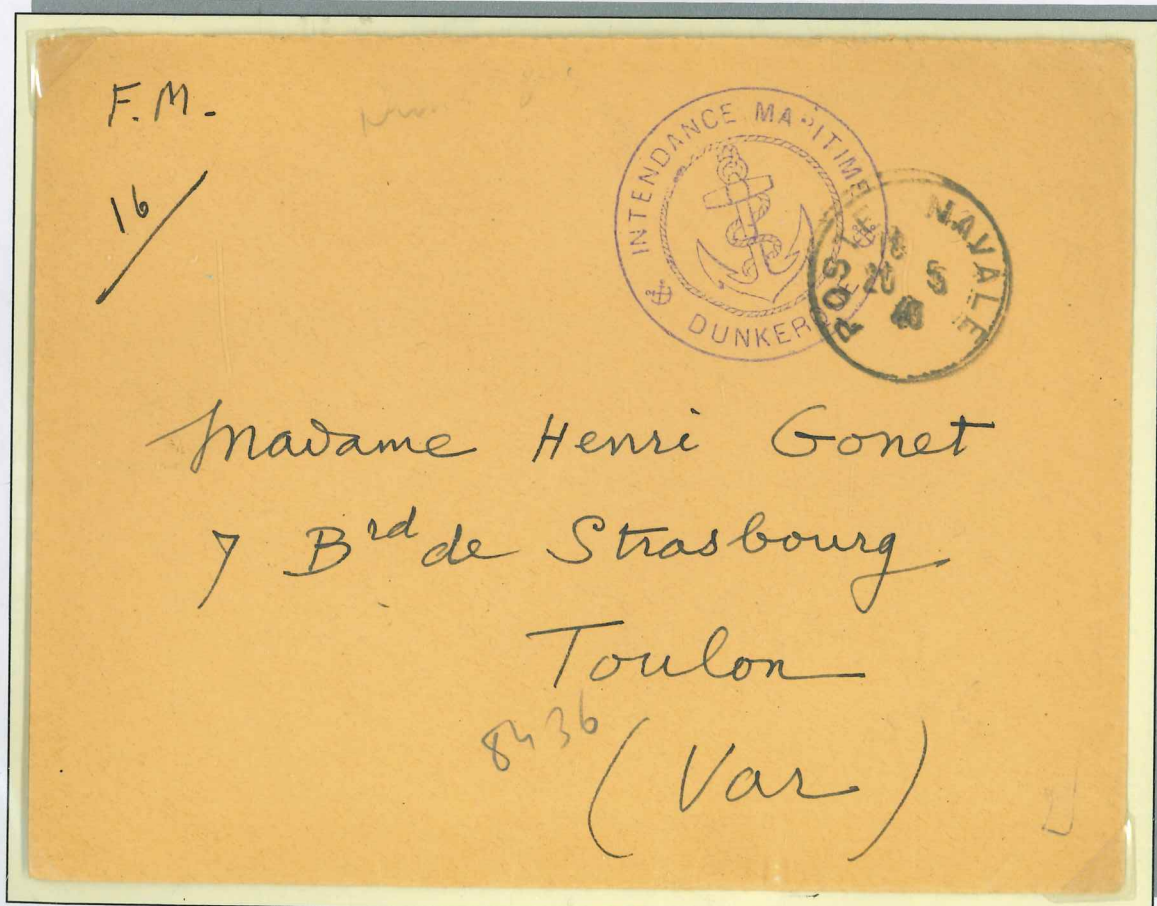 F.M.
16
INTENDANCE MARITIME
DUNKERQUE
POSTE NAVALE
5
40
Madame Henri Gonet
7 Brd de Strasbourg
Toulon
8436
(Var)